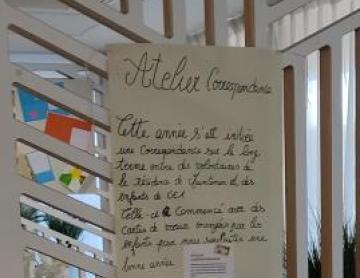 Atelier Correspondance
Cette année s'est initiée
une Correspondance sur le long
terme entre des volontaires de
la résidence de l'automne et des
enfants de CE1
Celle-ci a Commencé avec des
Cartes de voeux envoyées par les
enfants pour nous souhaiter une
bonne année